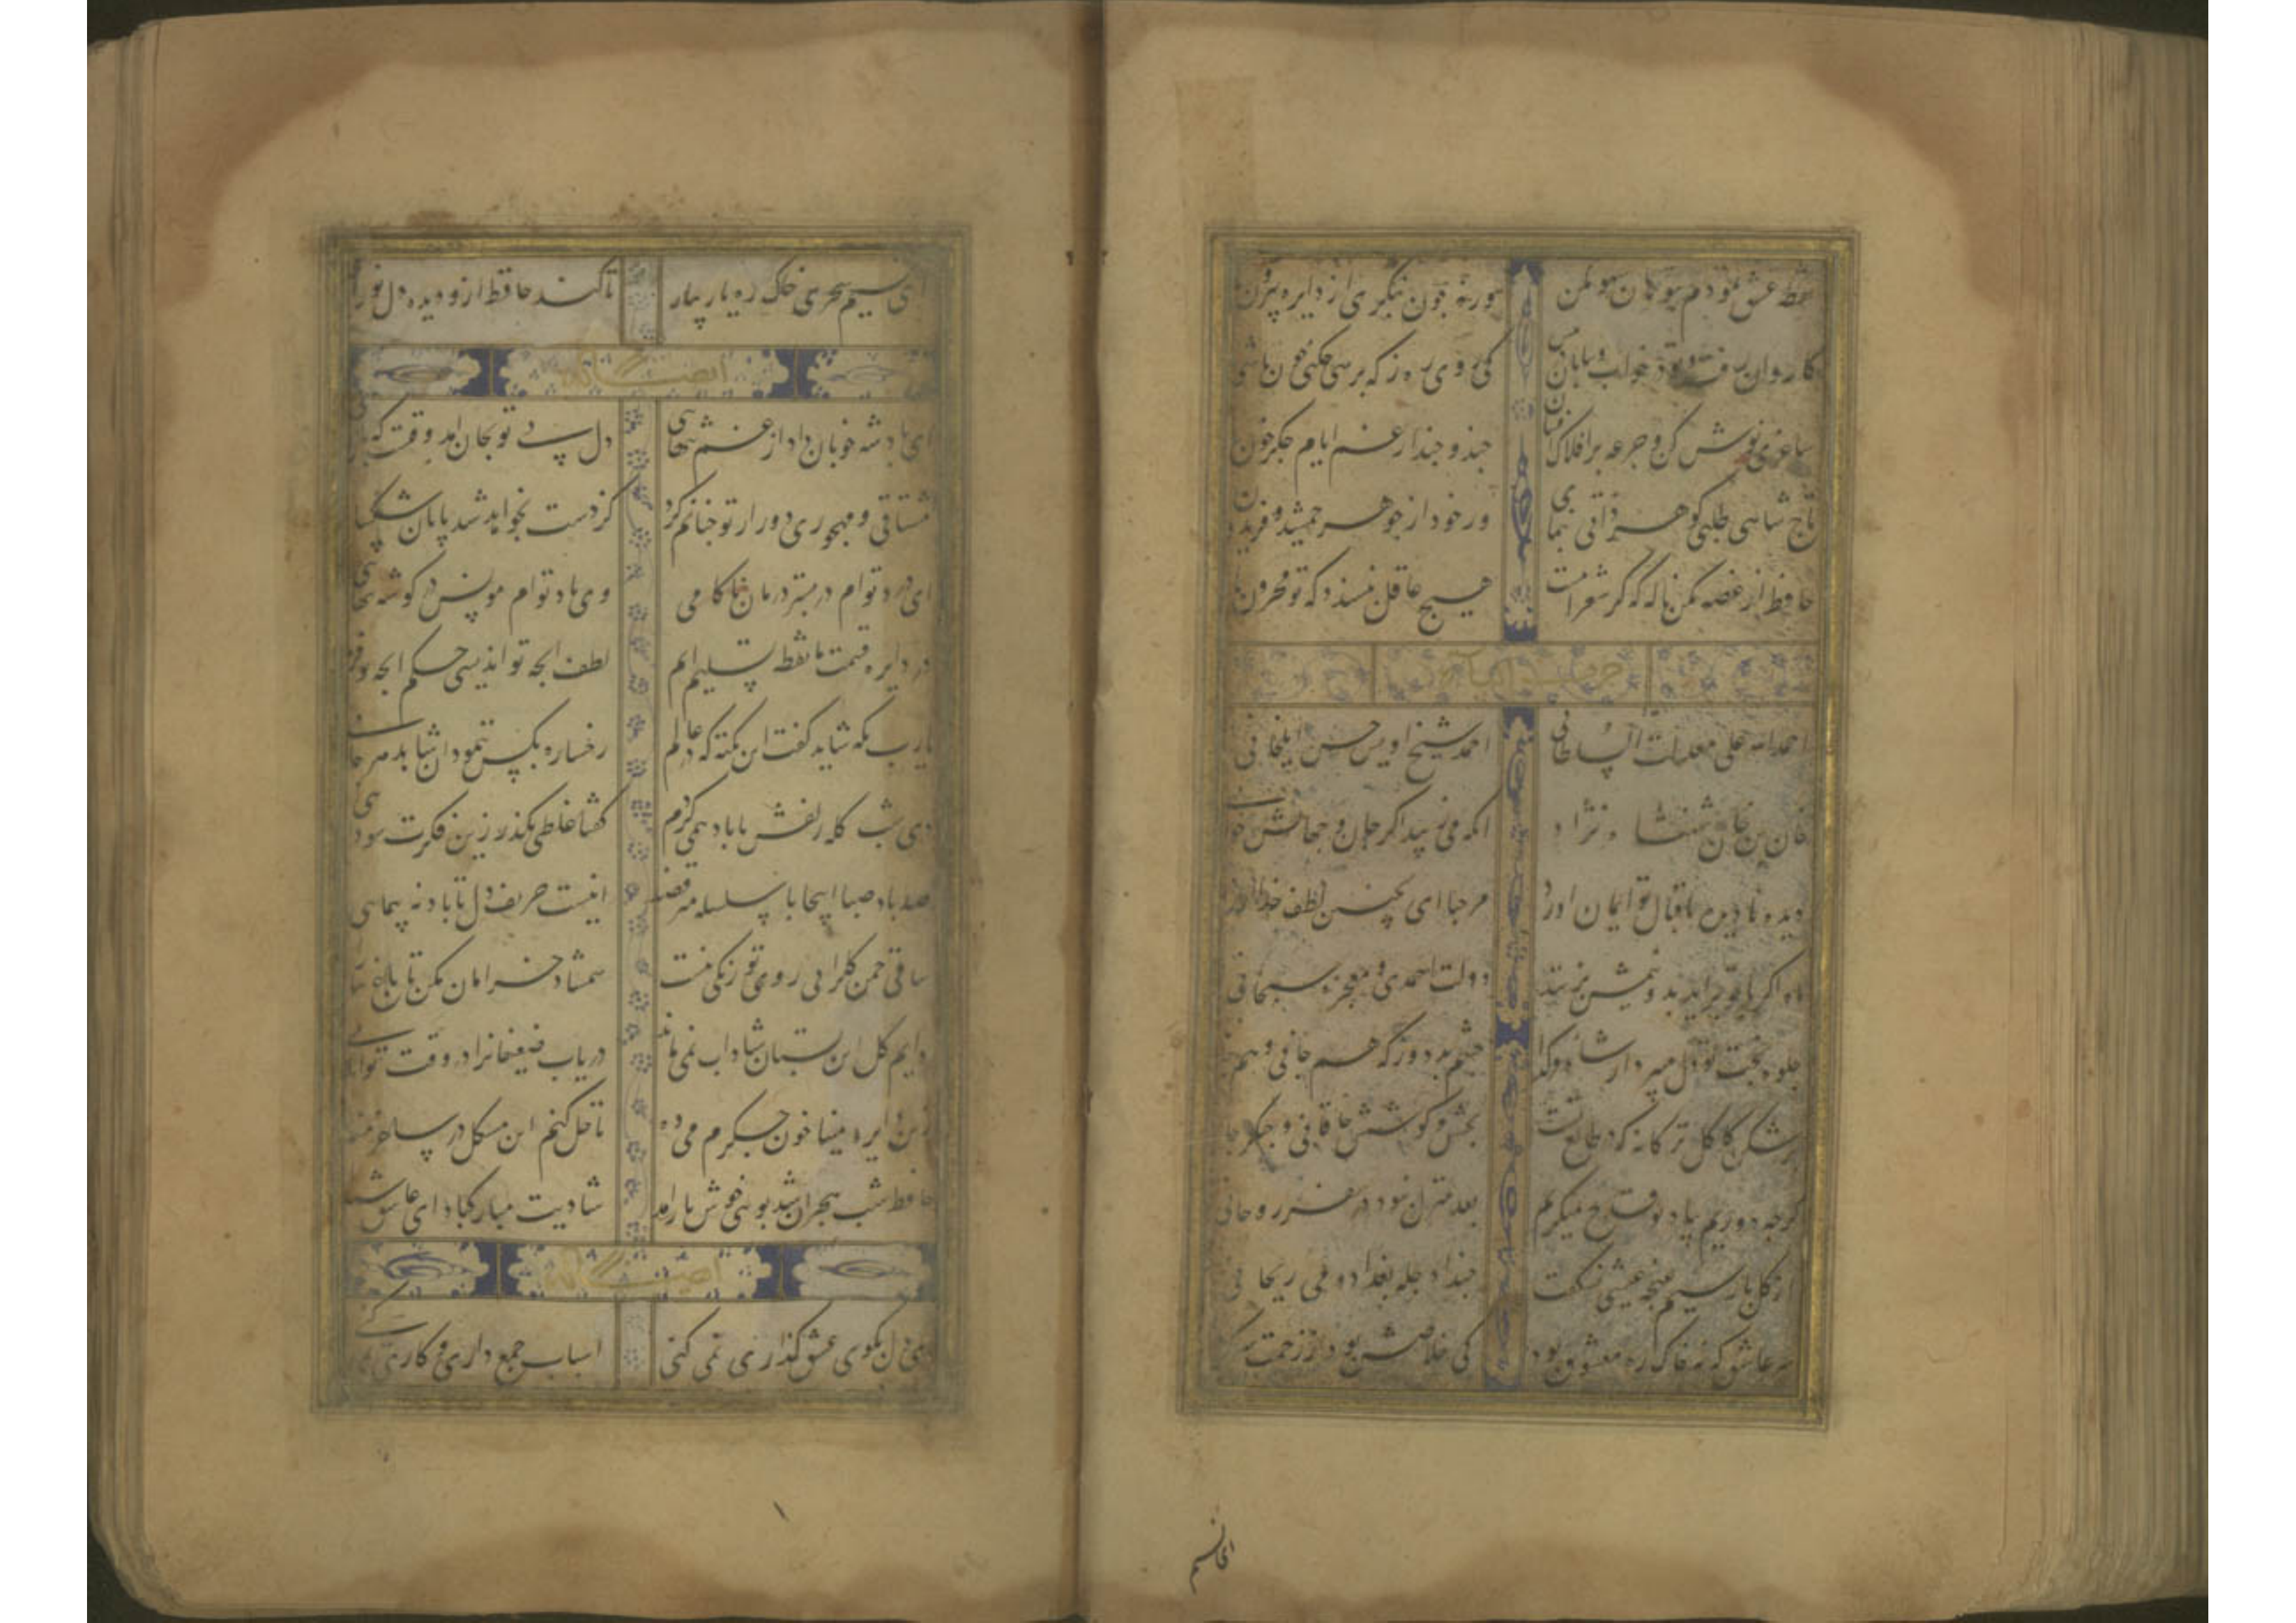 نقطه عشق نمودم بتو هان سهو مکن ورنه چون بنگری از دایره بیرون
کاروان رفت و تو در خواب و بیابان در پیش کی روی ره ز که پرسی چکنی چون باشی
ساغری نوش کن و جرعه بر افلاک فشان چند و چند از غم ایام جگر خون
تاج شاهی طلبی گوهر ذاتی بنمای ور خود از جوهر جمشید و فریدون
حافظ از غصه مکن ناله که گر شعر اینست هیچ عاقل نپسندد که تو محزون
احمد الله علی معدلت السلطانی احمد شیخ اویس حسن ایلخانی
خان بن خان شهنشاه نژاد انکه می زیبد اگر جان و جهانش خو
دیده نادیده باقبال تو ایمان اورد مرحبا ای بچنین لطف خدا
ماه اگر با تو براید بدو نیمش بزنند دولت احمدی و معجزه سبحانی
جلوه بخت تو دل میبرد از شاه و گدا چشم بد دور که هم جانی و هم
برشکن کاکل ترکانه که در طالع تست بخشش و کوشش خاقانی و چنگز خا
گرچه دوریم بیاد تو قدح میگیریم بعد منزل نبود در سفر روحانی
از گل پارسیم غنچه عیشی نشکفت حبذا دجله بغداد و می ریحانی
سر عاشق که نه خاک ره معشوق بود کی خلاصش بود از زحمت سر
الخانسم
ای نسیم سحری خاک ره یار بیار تا کند حافظ ازو دیده دل نورا
ایضا له
ای پادشه خوبان داد از غم تنهایی دل بی تو بجان امد وقتست که
مشتاقی و مهجوری دور از تو چنانم کرد کز دست بخواهد شد پایان شکیبایی
ای درد توام درمان در بستر ناکامی وی یاد توام مونس در گوشه تنهایی
در دایره قسمت ما نقطه تسلیمیم لطف انچه تو اندیشی حکم انچه تو فر
یارب بکه شاید گفت این نکته که در عالم رخساره بکس ننمود ان شاهد هر جایی
دی شب گله زلفش با باد همی کردم گفتا غلطی بگذر زین فکرت سود
صد باد صبا اینجا با سلسله می رقصند اینست حریف دل تا باد نه پیمایی
ساقی چمن گل را بی روی تو رنگی نیست شمشاد خرامان کن تا باغ
دایم گل این بستان شاداب نمی ماند دریاب ضعیفانرا در وقت توانا
زین دایره مینا خون جگرم می ده تا حل کنم این مشکل در ساغر مینا
حافظ شب هجران شد بوی خوش یار امد شادیت مبارک باد ای عاشق
ایضا له
ای دل بکوی عشق گذاری نمی کنی اسباب جمع داری و کاری نمی کنی